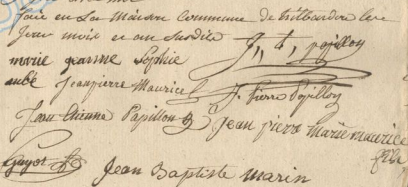 faire en La Maison Commune de trilbardou les
jour mois et an Susdits
J, t, papillon
marie jeanne Sophie
aubé jeanpierre Maurice
J. Pierre Papillon
Jean Etienne Papillon
Jean pierre Marie maurice
fils
Guyot
Jean Baptiste Marin